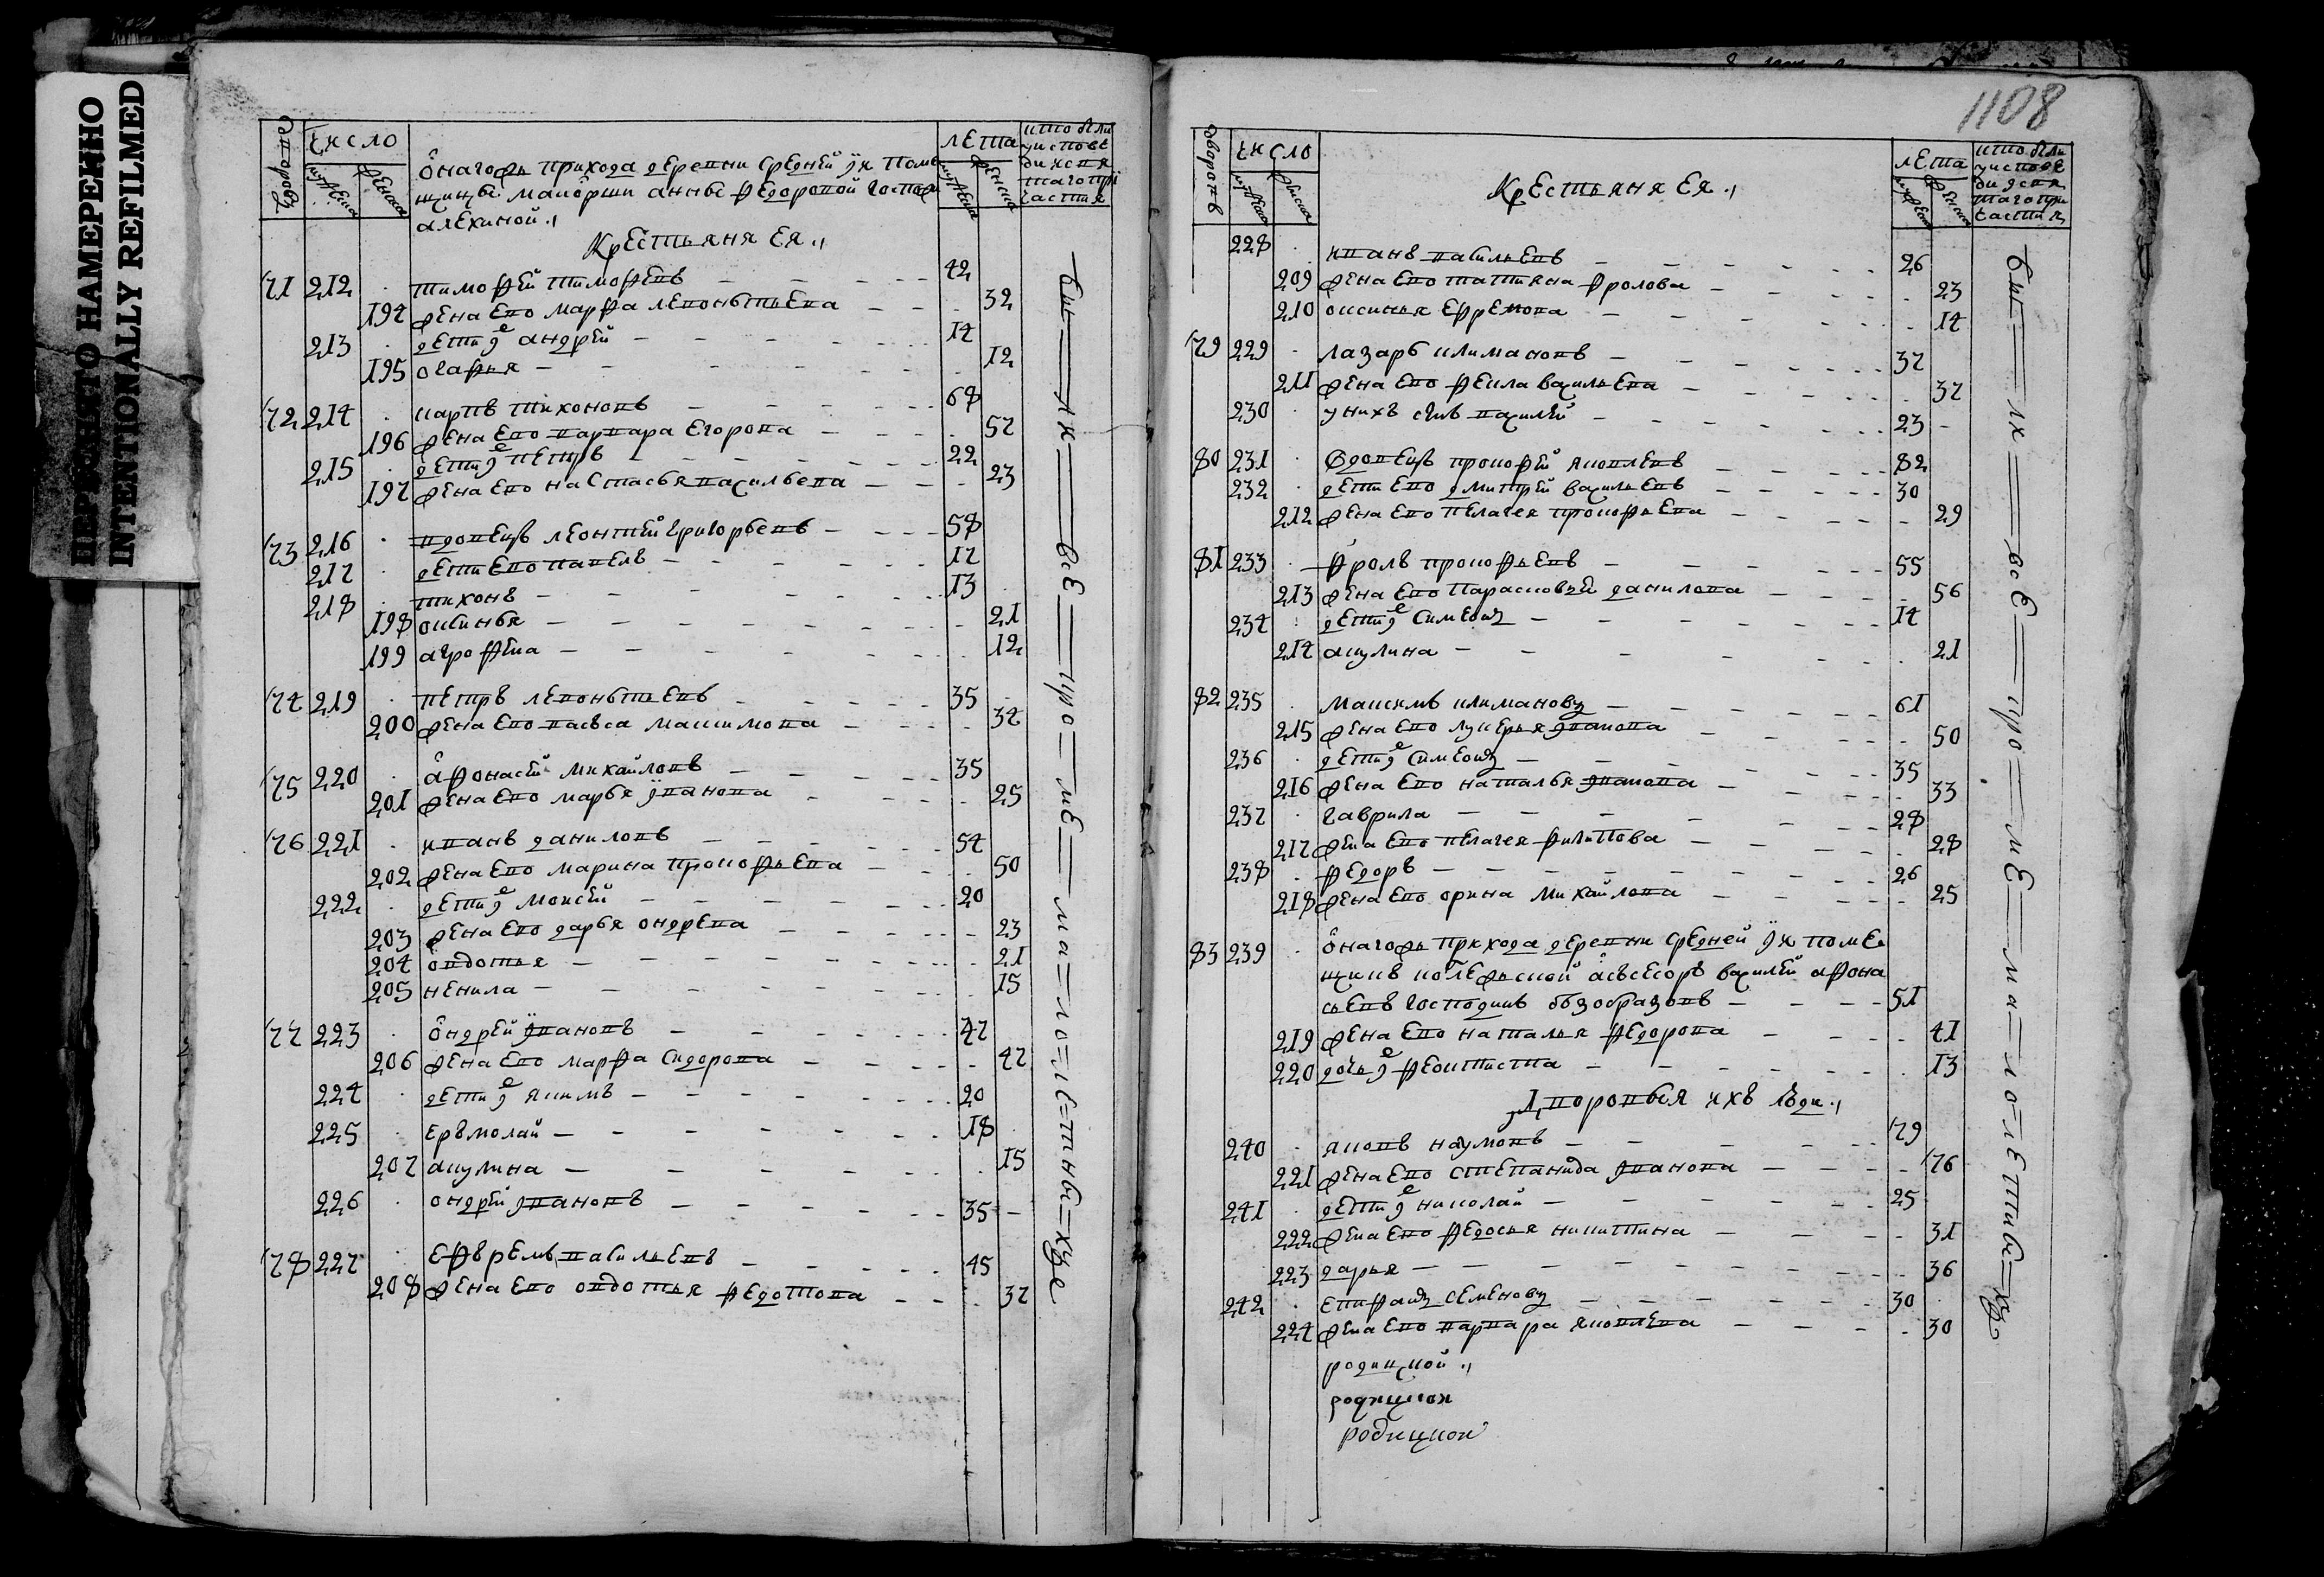 ПЕРЕСНЯТО НАМЕРЕННО
INTENTIONALLY REFILMED
дворовъ
число
мужеска
женска
онагожъ прихода деревни средней ук поме
щицы маиорши анны федоровой госпож
алехиной
лета
мужеска
женска
кто были
у испове
ди и свя
таго при
частия
Крестьяня ея
71 212 тимофей тимофеевъ 42
194 жена ево марфа левонтьева 32
213 дети ихъ андрей 14
195 огафья 12
72 214 карпъ тихоновъ 68
196 жена ево варвара егорова 57
215 дети ихъ петръ 22
197 жена ево настасья васильева 23
73 216 вдовецъ леонтей григорьевъ 58
217 дети ево павелъ 17
218 тихонъ 13
198 оксинья 21
199 агрофена 12
74 219 петръ левонтьевъ 35
200 жена ево васса максимова 34
75 220 афонасей михайловъ 35
201 жена ево марья иванова 25
76 221 иванъ даниловъ 54
202 жена ево марина прокофьева 50
222 дети ихъ моисей 20
203 жена ево дарья ондрева 23
204 овдотья 21
205 ненила 15
77 223 ондрей ивановъ 47
206 жена ево марфа сидорова 47
224 дети ихъ якимъ 20
225 ерьмолай 18
207 акулина 15
226 ондрей ивановъ 35
78 227 ефъремъ васильевъ 45
208 жена ево овдотья федотова 37
бы ли все про ме ма ло летныхъ
1108
дворовъ
число
мужеска
женска
Крестьяня ея
лета
мужеска
женска
кто были
у испове
ди и свя
таго при
частия
228 иванъ васильевъ 26
209 жена ево татияна фролова 23
210 оксинья ефремова 14
79 229 лазарь климановъ 37
211 жена ево фекла васильева 37
230 у нихъ сынъ василей 23
80 231 вдовецъ прокофей яковлевъ 82
232 дети ево дмитрей васильевъ 30
212 жена ево пелагея прокофьева 29
81 233 фролъ прокофьевъ 55
213 жена ево парасковья данилова 56
234 дети ихъ симеонъ 14
214 акулина 21
82 235 максимъ климановъ 61
215 жена ево лукерья иванова 50
236 дети ихъ симеонъ 35
216 жена ево наталья иванова 33
237 гаврила 28
217 жена ево пелагея филипова 28
238 федоръ 26
218 жена ево орина михайлова 25
83 239 онагожъ прихода деревни средней ук поме
щикъ колежской асъсесоръ василей афона
сьевъ господинъ обзобразовъ 51
219 жена ево наталья федорова 41
220 дочь ихъ феоктиста 13
Дворовыя ихъ люди
240 яковъ наумовъ 79
221 жена ево степанида иванова 76
241 дети ихъ николай 25
222 жена ево федосья никитина 31
223 дарья 36
242 епифанъ семеновъ 30
224 жена ево варвара яковлева 30
родицкой
родицкои
родицкои
бы ли все про ме ма ло летныхъ